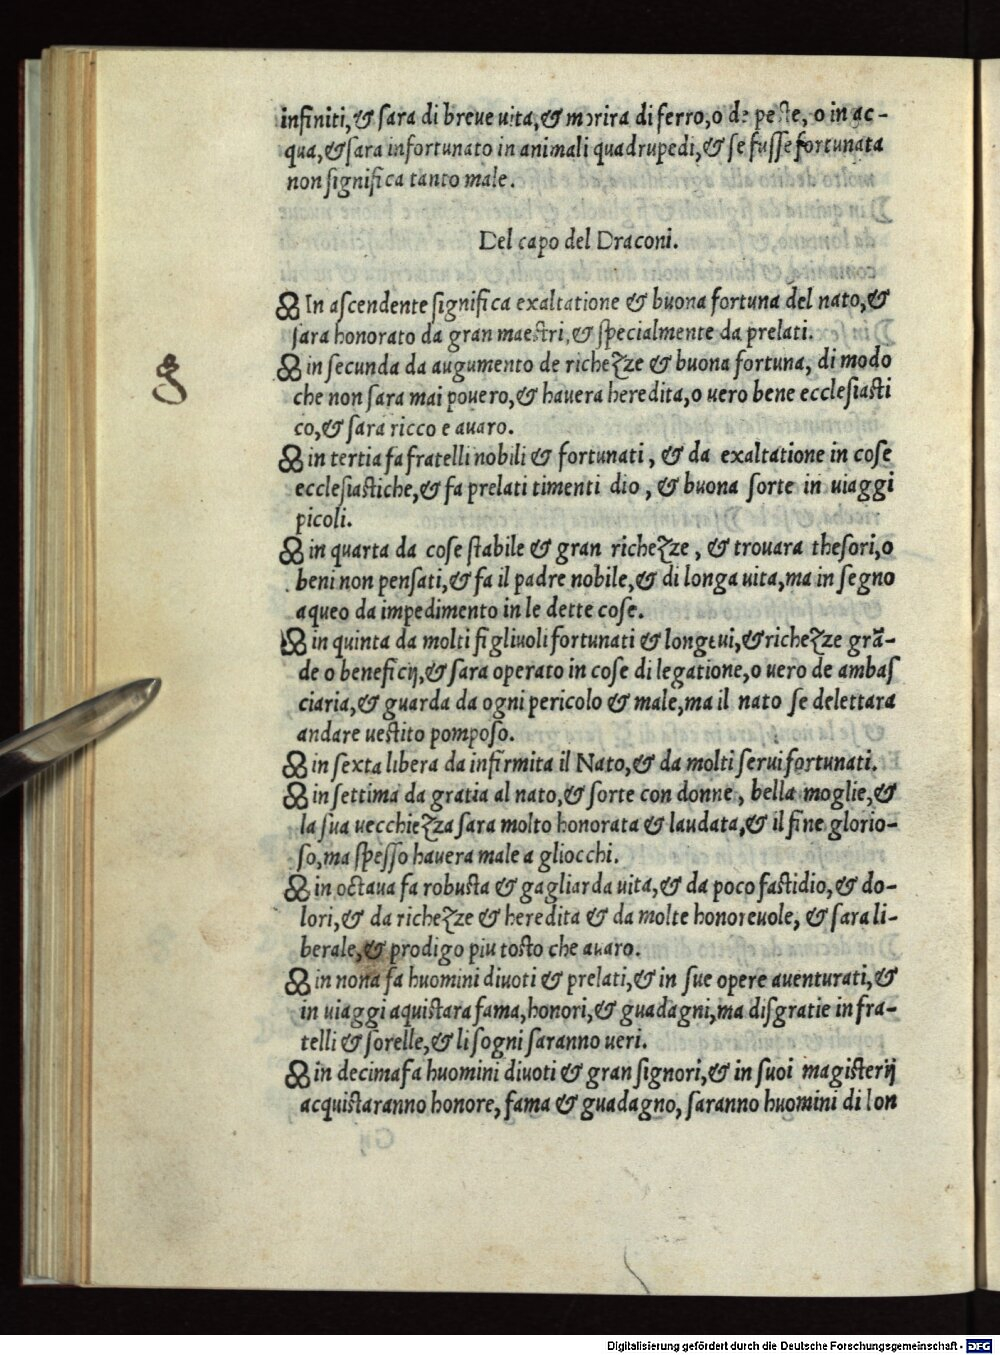 infiniti,& sara di breue uita,& morira di ferro,o de peste, o in ac-
qua,& sara infortunato in animali quadrupedi,& se fusse fortunata
non significa tanto male.
Del capo del Draconi.
☊ In ascendente significa exaltatione & buona fortuna del nato,&
sara honorato da gran maestri,& specialmente da prelati.
☊ in secunda da augumento de richezze & buona fortuna, di modo
che non sara mai pouero,& hauera heredita,o uero bene ecclesiasti
co,& sara ricco e auaro.
☊ in tertia fa fratelli nobili & fortunati, & da exaltatione in cose
ecclesiastiche,& fa prelati timenti dio, & buona sorte in uiaggi
picoli.
☊ in quarta da cose stabile & gran richezze, & trouara thesori,o
beni non pensati,& fa il padre nobile,& di longa uita,ma in segno
aqueo da impedimento in le dette cose.
☊ in quinta da molti figliuoli fortunati & longeui,& richezze grã-
de o beneficij,& sara operato in cose di legatione,o uero de ambas
ciaria,& guarda da ogni pericolo & male,ma il nato se delettara
andare uestito pomposo.
☊ in sexta libera da infirmita il Nato,& da molti serui fortunati.
☊ in settima da gratia al nato,& sorte con donne, bella moglie,&
la sua uecchiezza sara molto honorata & laudata,& il fine glorio-
so,ma spesso hauera male a gliocchi.
☊ in octaua fa robusta & gagliarda uita,& da poco fastidio,& do-
lori,& da richezze & heredita & da molte honoreuole, & sara li-
berale,& prodigo piu tosto che auaro.
☊ in nona fa huomini diuoti & prelati,& in sue opere auenturati,&
in uiaggi aquistara fama,honori,& guadagni,ma disgratie in fra-
telli & sorelle,& li sogni saranno ueri.
☊ in decima fa huomini diuoti & gran signori,& in suoi magisterij
acquistaranno honore, fama & guadagno, saranno huomini di lon
Digitalisierung gefördert durch die Deutsche Forschungsgemeinschaft - DFG